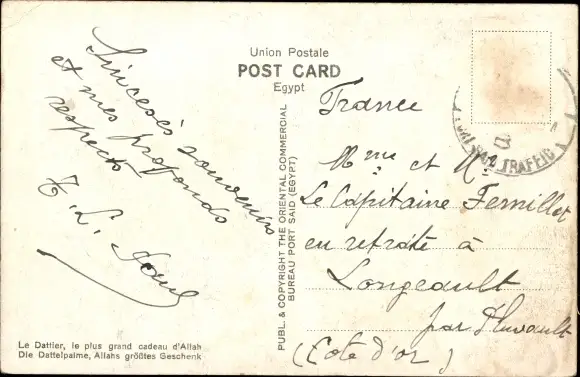 Union Postale
POST CARD
Egypt
Sincères souvenirs
et mes profonds
respects
France
Mme et Mr
Le Capitaine Femillot
en retraite à
Longeault
par Pluvault
(Cote d'or)
PUBL. & COPYRIGHT THE ORIENTAL COMMERCIAL
BUREAU PORT SAID (EGYPT)
TRAFFIC
Le Dattier, le plus grand cadeau d'Allah
Die Dattelpalme, Allahs größtes Geschenk